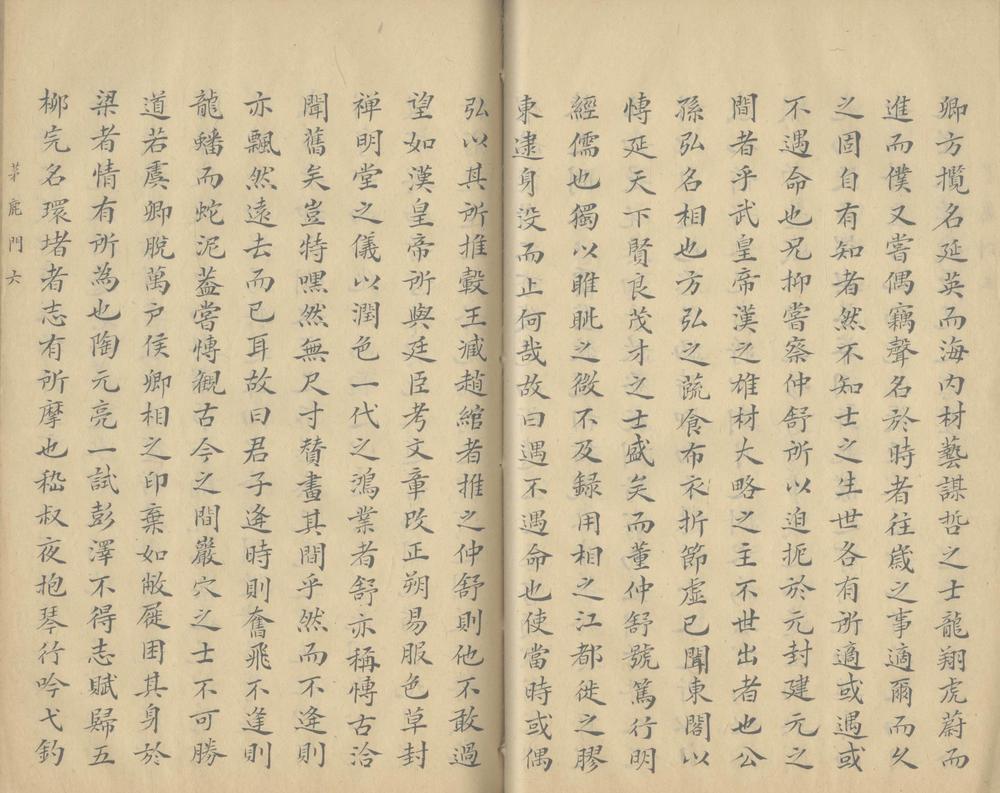 卿方攬名延英而海内材藝謀哲之士龍翔虎蔚而
進而僕又嘗偶竊聲名於時者往歲之事適爾而久
之固自有知者然不知士之生世各有所適或遇或
不遇命也兄抑嘗察仲舒所以迫扼於元封建元之
間者乎武皇帝漢之雄材大略之主不世出者也公
孫弘名相也方弘之蔬食布衣折節虚已闢東閣以
愽延天下賢良茂才之士盛矣而董仲舒號篤行明
經儒也獨以睢眦之微不及録用相之江都徙之膠
東逮身没而止何哉故曰遇不遇命也使當時或偶
弘以其所推轂王滅趙綰者推之仲舒則他不敢過
望如漢皇帝所與廷臣考文章改正朔易服色草封
禅明堂之儀以潤色一代之鴻業者舒亦稱愽古洽
聞舊矣豈特嘿然無尺寸賛畫其間乎然而不逢則
亦飄然遠去而已耳故曰君子逢時則奮飛不逢則
龍蟠而蛇泥葢嘗愽觀古今之間巖穴之士不可勝
道若虞卿脫萬户侯卿相之印棄如敝屣困其身於
梁者情有所為也陶元亮一試彭澤不得志賦歸五
栁完名環堵者志有所摩也嵇叔夜抱琴行吟弋釣
茅鹿門六